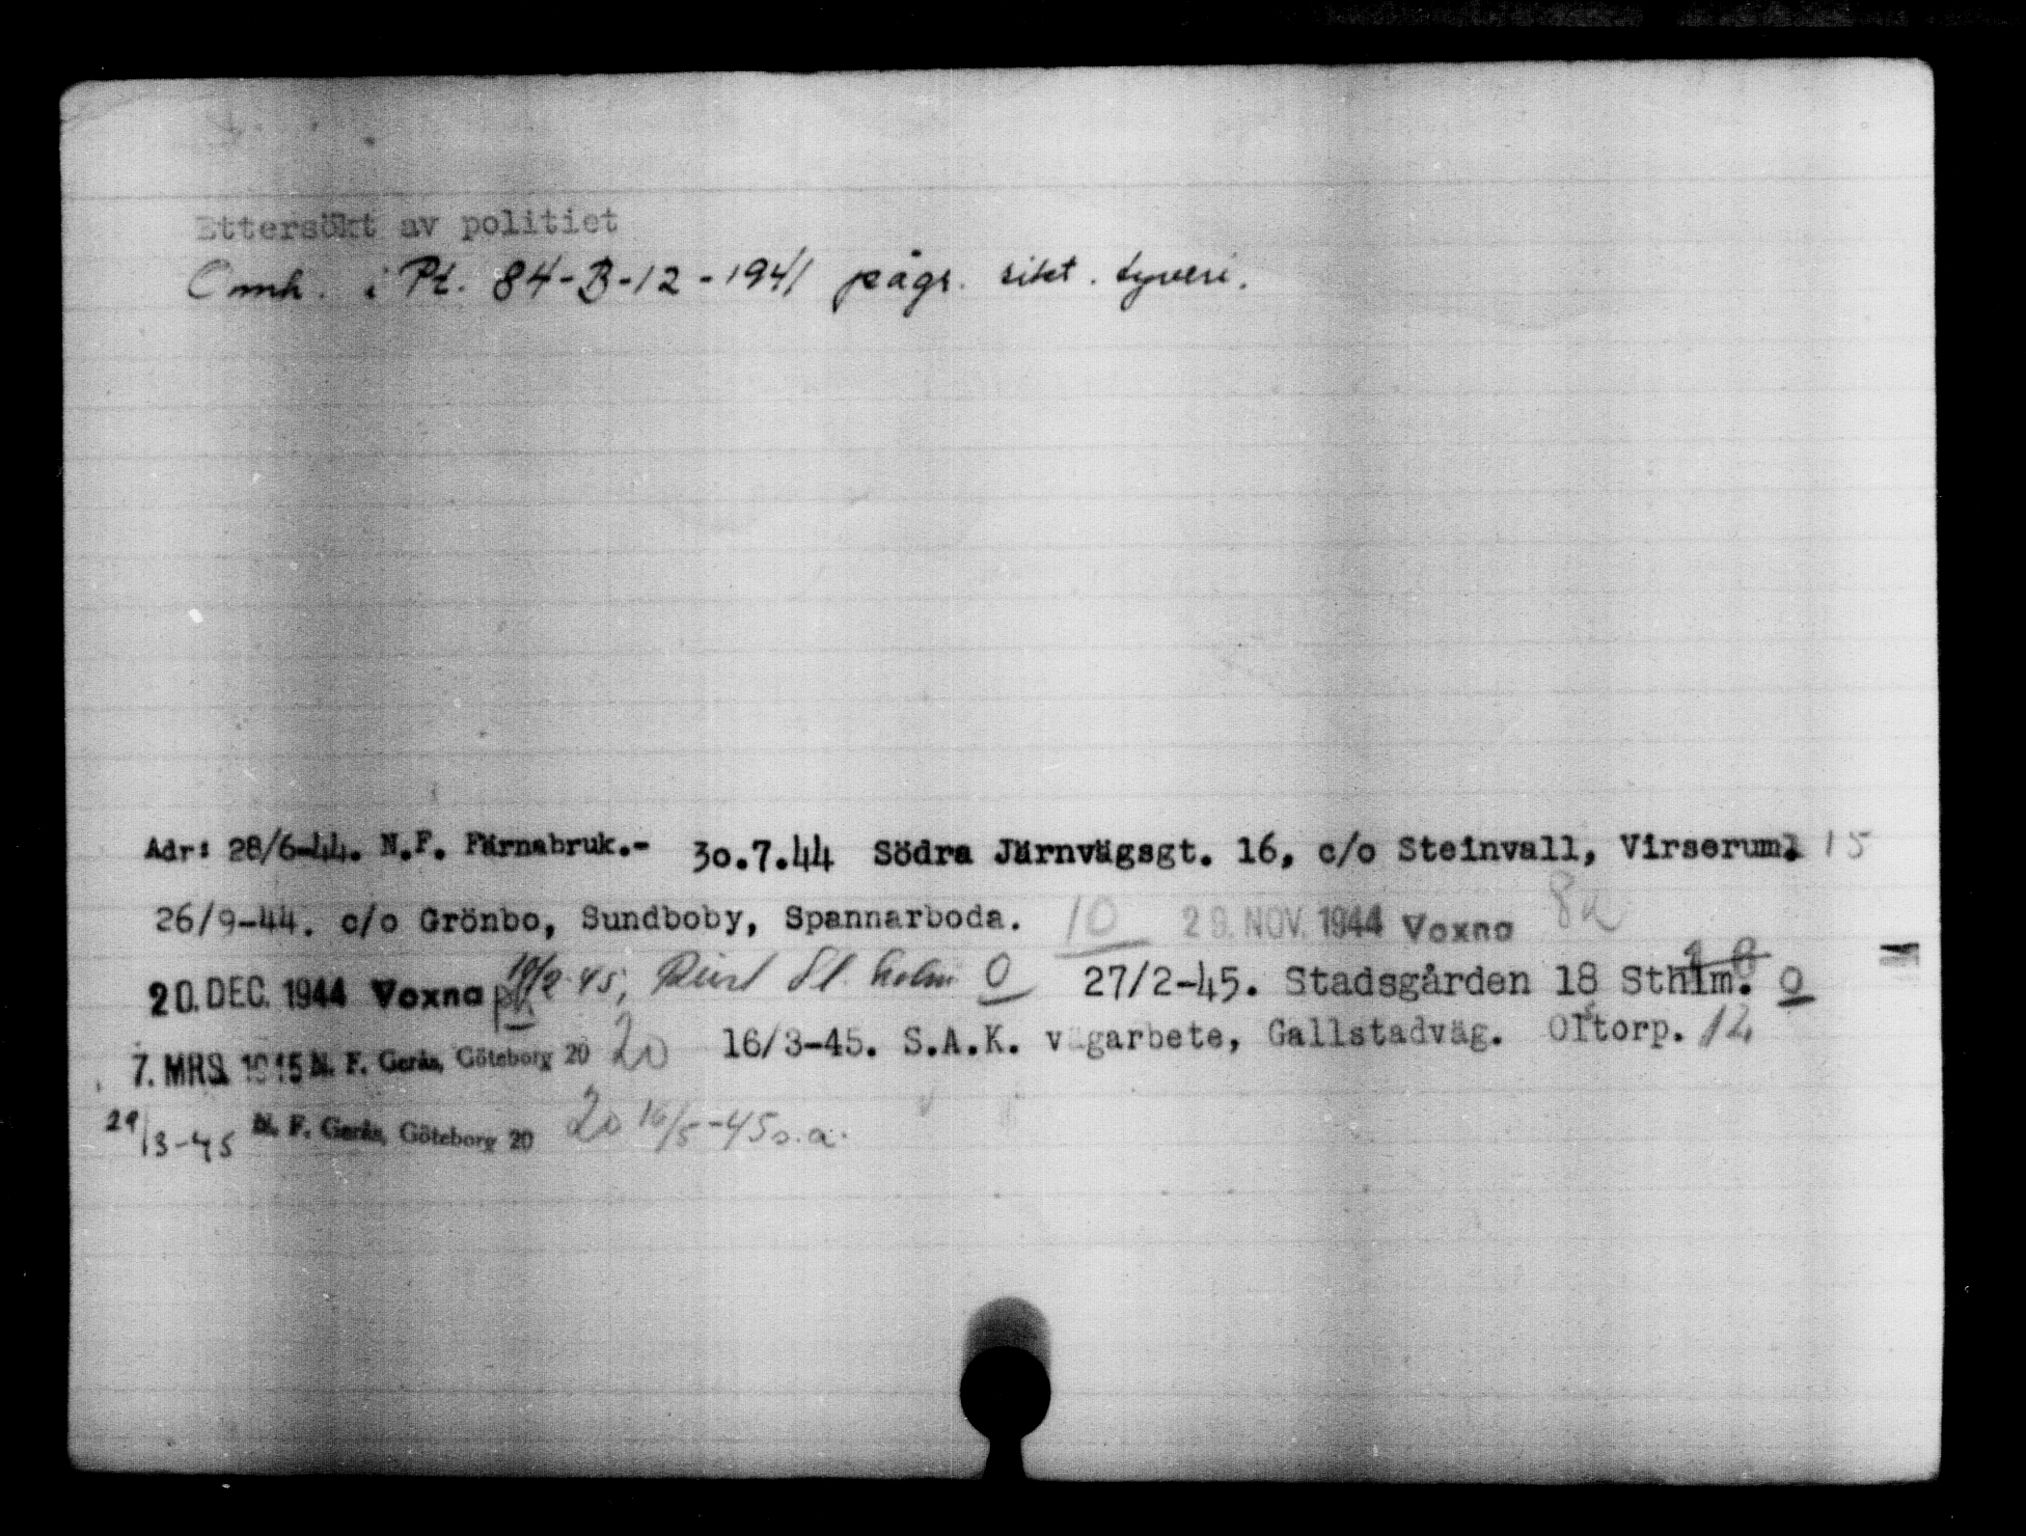 Ettersökt av politiet
Omh. i Pt. 84-B-12-1941 pågr. sikt. tyveri.
Adr: 28/6-44. N.F. Färnabruk.- 30.7.44 Södra Järnvägsgt. 16, c/o Steinvall, Virserum. 15
26/9-44. c/o Grönbo, Sundboby, Spannarboda. 10 29. NOV. 1944 Voxna
20. DEC. 1944 Voxna 45, holm 0 27/2-45. Stadsgården 18 Sthlm. 0
7. MRS. 1945 N. F. Gerås, Göteborg 20 20 16/3-45. S.A.K. vägarbete, Gallstadväg. Olstorp. 12
29/3-45 N. F. Gerås, Göteborg 20 20 16/5-45 s.a.